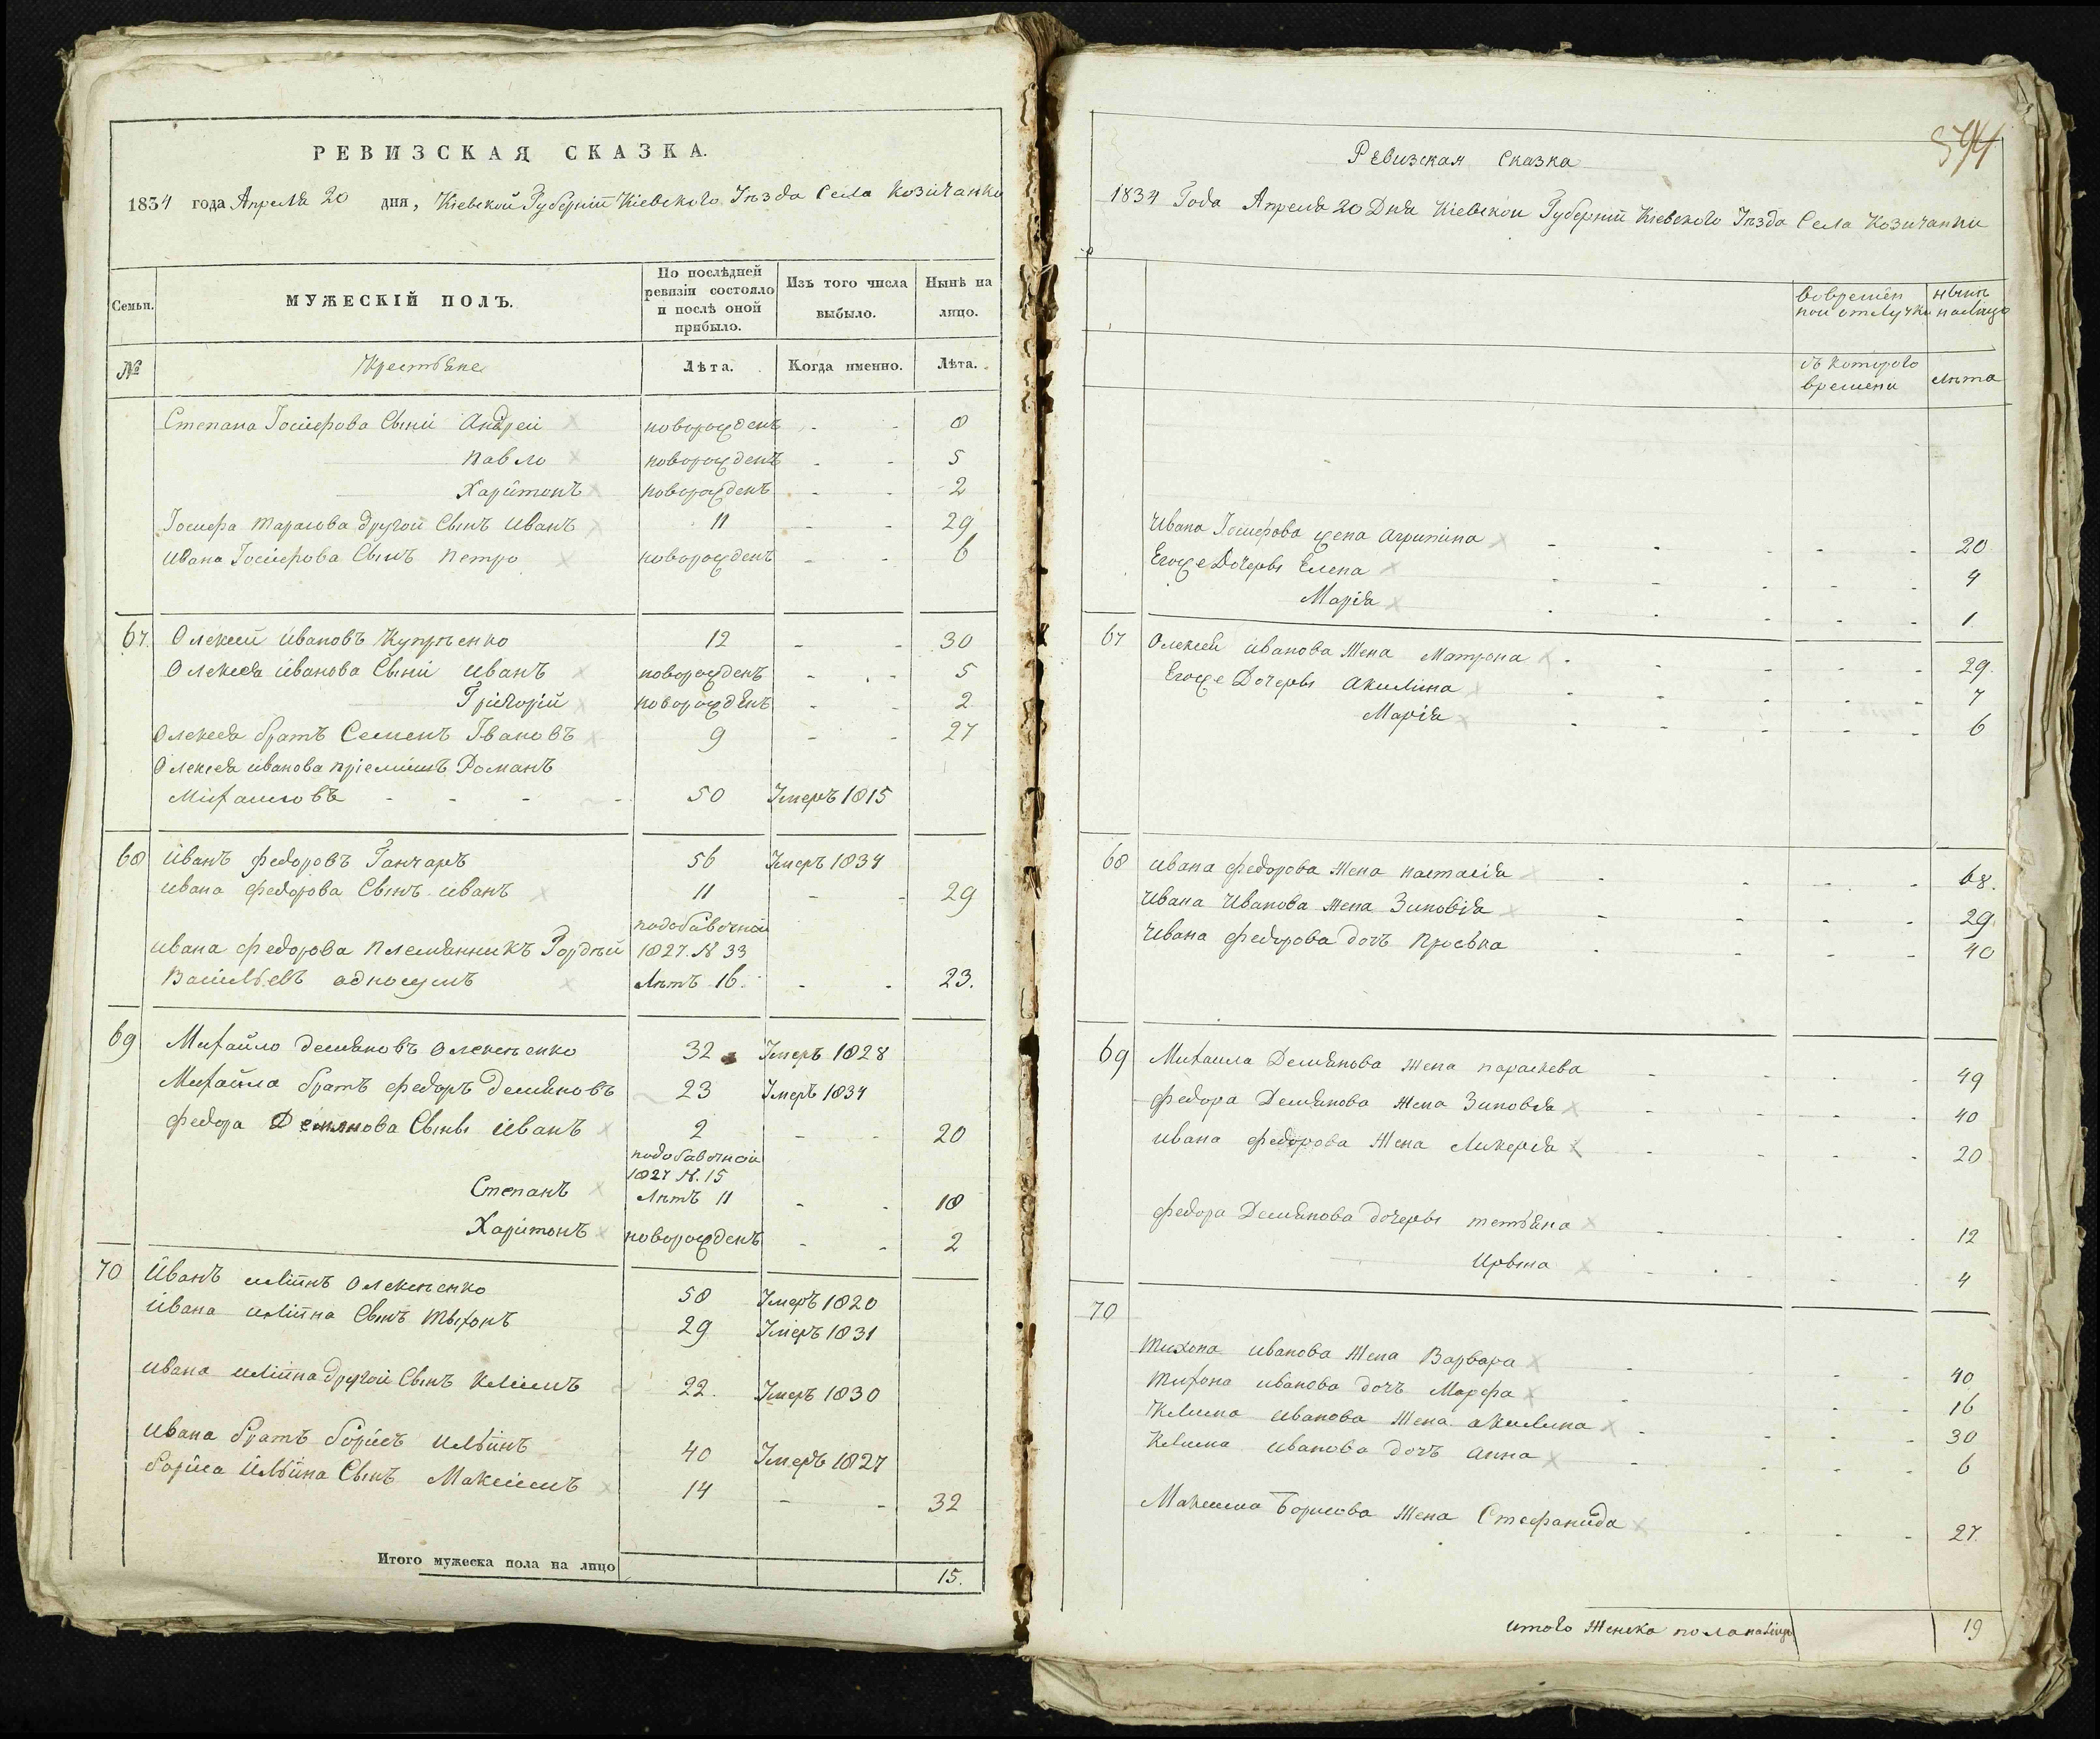 РЕВИЗСКАЯ СКАЗКА.
1834 года Апреля 20 дня, Кіевской Губерніи Кіевского Уѣзда Села Козичанки
Семьи.
МУЖЕСКІЙ ПОЛЪ.
По послѣдней ревизіи состояло и послѣ оной прибыло.
Изъ того числа выбыло.
Нынѣ на лицо.
№ Крестьяне Лѣта. Когда именно. Лѣта.
Степана Іосифова Сыни Андреи новорожденъ - - 8
Павло новорожденъ - - 5
Харитонъ новорожденъ - - 2
Іосифа тарасова другои Сынъ Иванъ 11 - - 29
Ивана Іосифова Сынъ петро новорожденъ - - 6
67 Олексей ивановъ Купрѣенко 12 - - 30
Олексея иванова Сыни иванъ новорожденъ - - 5
Григорій новорожденъ - - 2
Олексея братъ Семенъ Івановъ 9 - - 27
Олексея иванова пріемишъ Романъ
Михаиловъ - - - - 50 Умеръ 1815
68 иванъ федоровъ Ганчаръ 56 Умеръ 1834
ивана федорова Сынъ иванъ 11 - - 29
подобавочной
ивана федорова племянникъ Гордѣй 1827. N 33
Васильевъ Лѣтъ 16. - - 23.
69 Михайло демяновъ олексѣенко 32 Умеръ 1828
Михайла братъ федоръ демяновъ 23 Умеръ 1834
федора Демянова Сыны иванъ 2 - - 20
подобавочной
1827 N. 15
Степанъ Лѣтъ 11 - - 18
Харитонъ новорожденъ - - 2
70 Иванъ илїинъ олексѣенко 58 Умеръ 1820
ивана илїина Сынъ тыхонъ 29 Умеръ 1831
ивана илїина другой Сынъ Климъ 22. Умеръ 1830
ивана братъ борисъ ильинъ 40 Умеръ 1827
бориса ильина Сынъ Максимъ 14 - - 32
Итого мужеска пола на лицо 15.
Ревизская Сказка
1834 Года Апреля 20 Дня Кіевской Губерніи Кіевского Уѣзда Села Козичанки
Вовремен
ной отлучки
нынѣ
налицо
съ которого
времени
лѣта
Ивана Іосифова жена агрипина - - - - 20
Егоже Дочеры Елена - - - - 4
Марія - - - - 1
67 Олексея иванова жена матрона - - - - 29
Егоже Дочеры акилина - - - - 7
Марія - - - - 6
68 ивана федорова жена настасія - - - - 68.
Ивана Иванова жена Зиновія - - - - 29
Ивана федорова дочъ - - - - 40
69 Михаила Демянова жена параскева - - - - 49
федора Демянова жена Зиновія - - - - 40
ивана федорова жена Ликерія - - - - 20
федора Демянова дочеры тетяна - - - - 12
Ирына - - - - 4
70
тихона иванова жена Варвара - - - 40
тихона иванова дочъ Марфа - - - 16
Клима иванова жена акилина - - - 30
Клима иванова дочъ анна - - - 6
Максима Борисова жена Стефанида - - - 27.
итого женска пола налицо 19